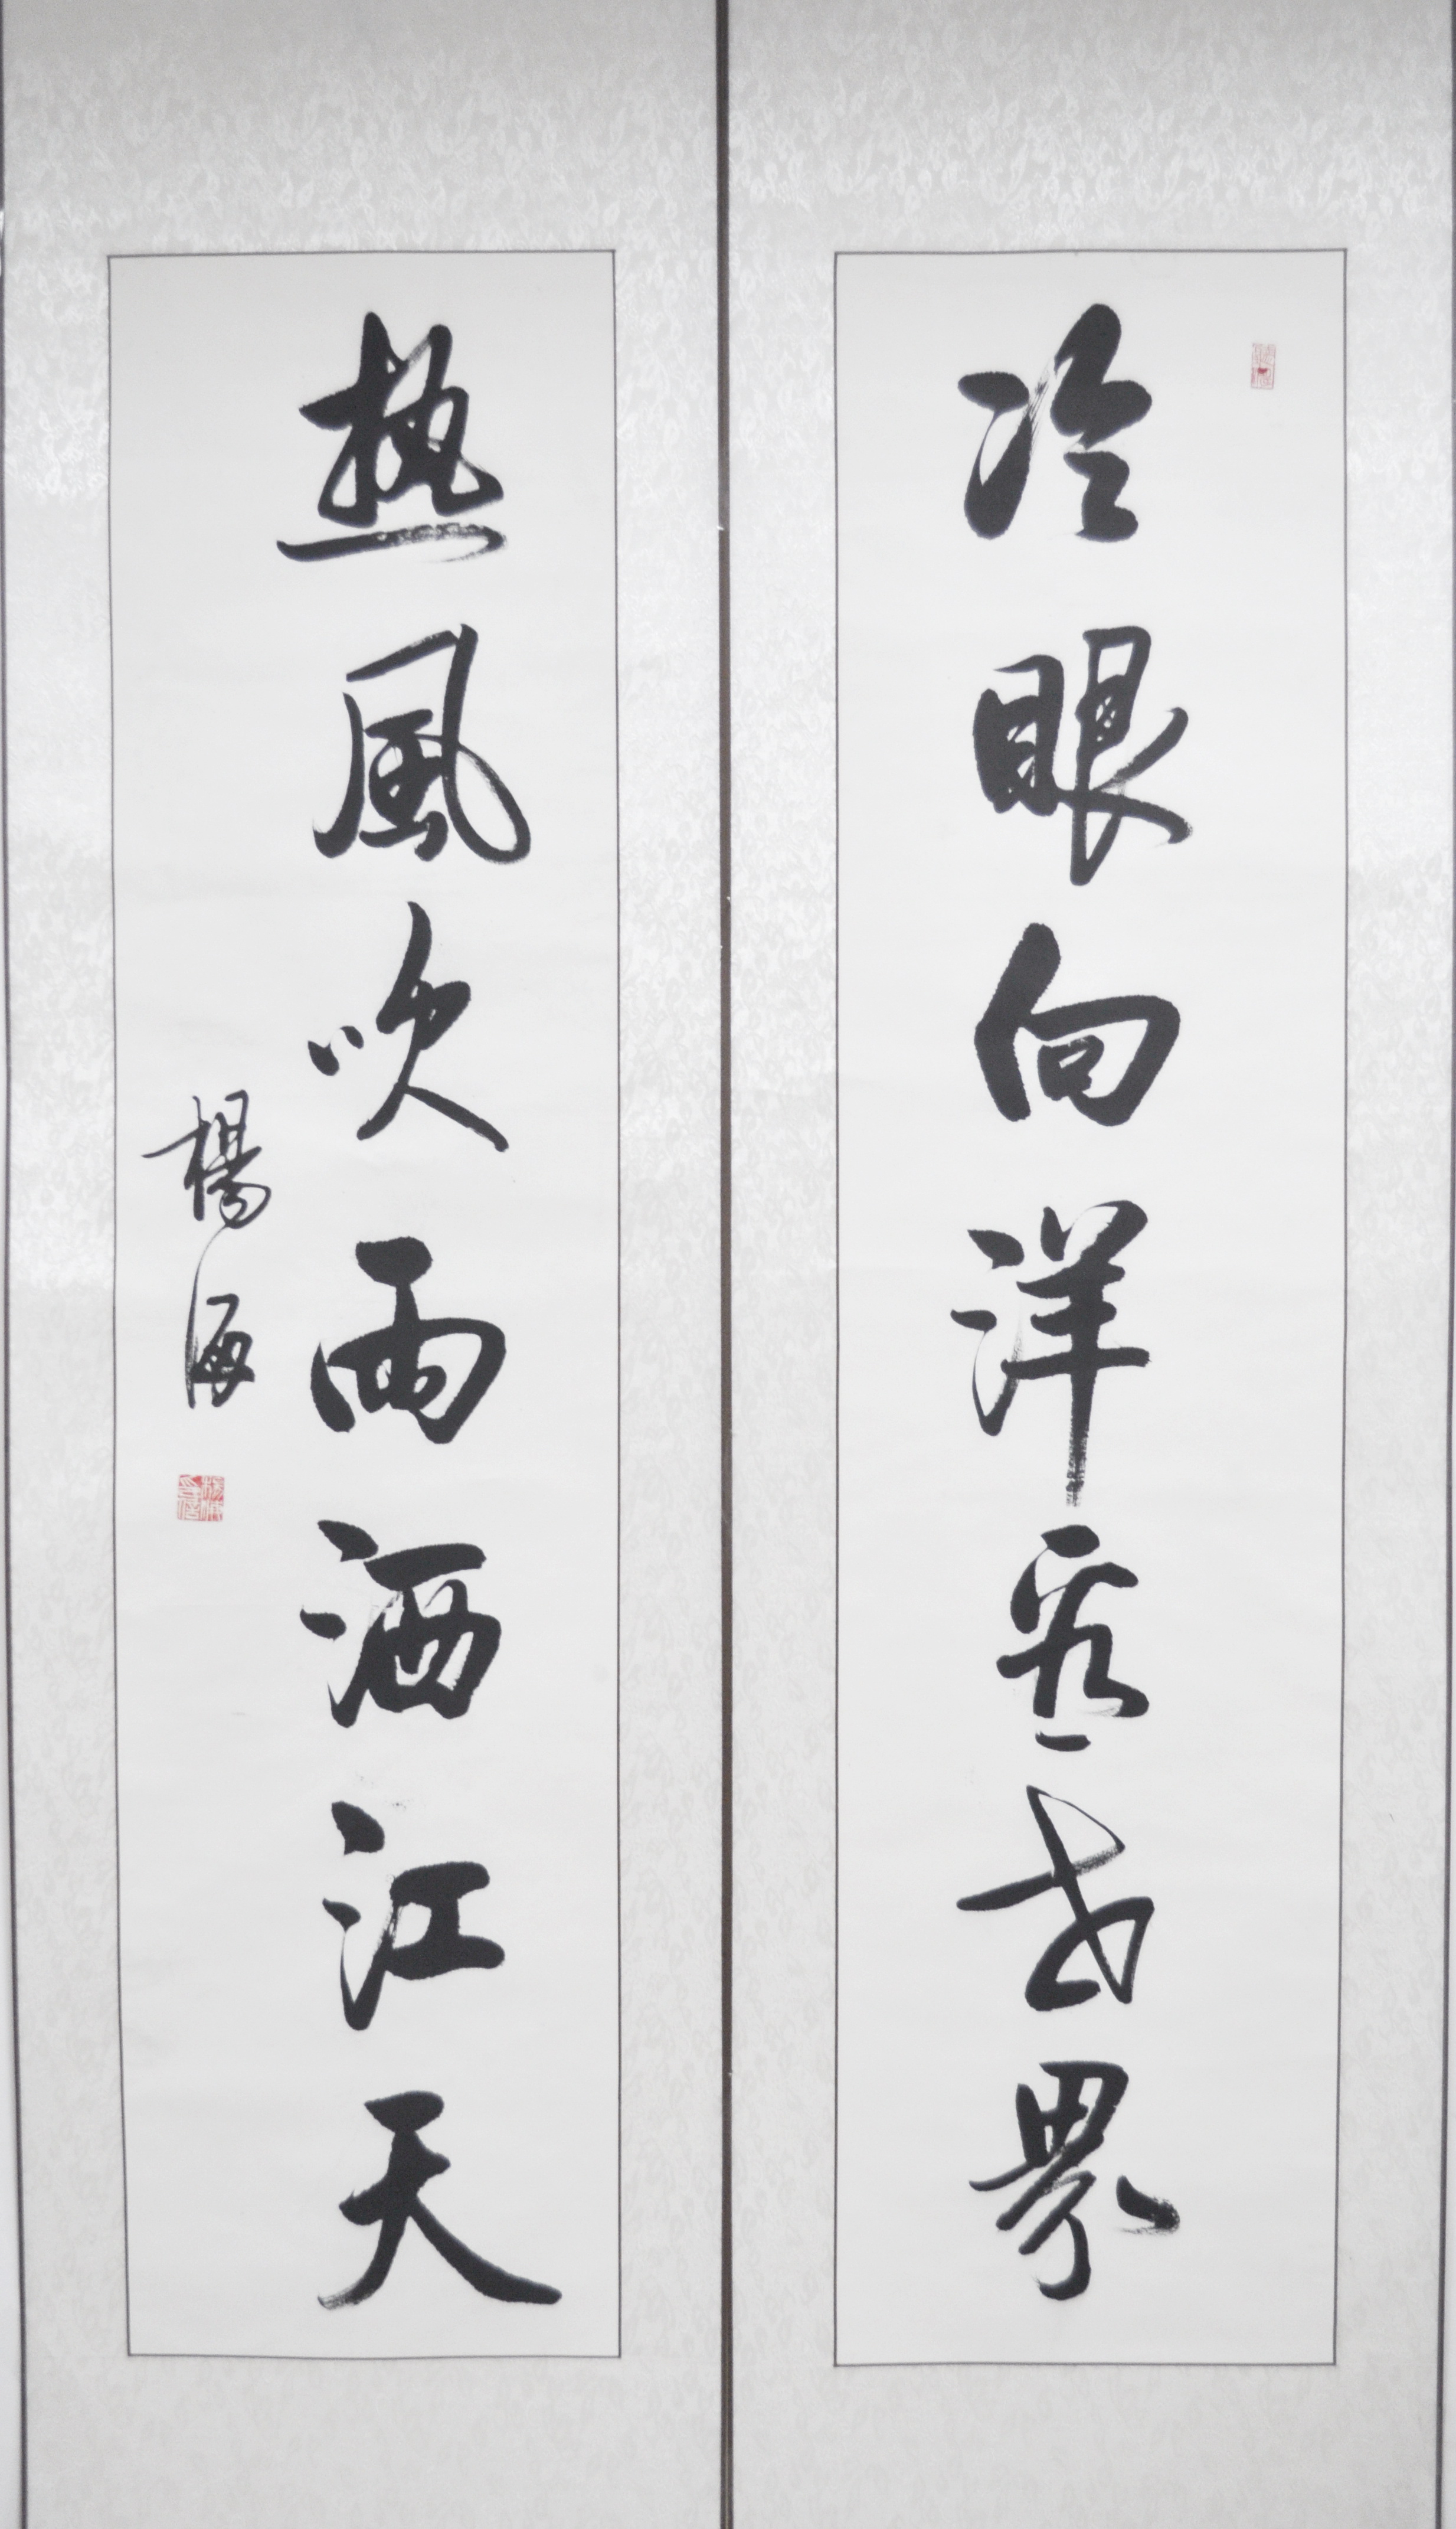 冷眼向洋看世界
热風吹雨洒江天
楊海